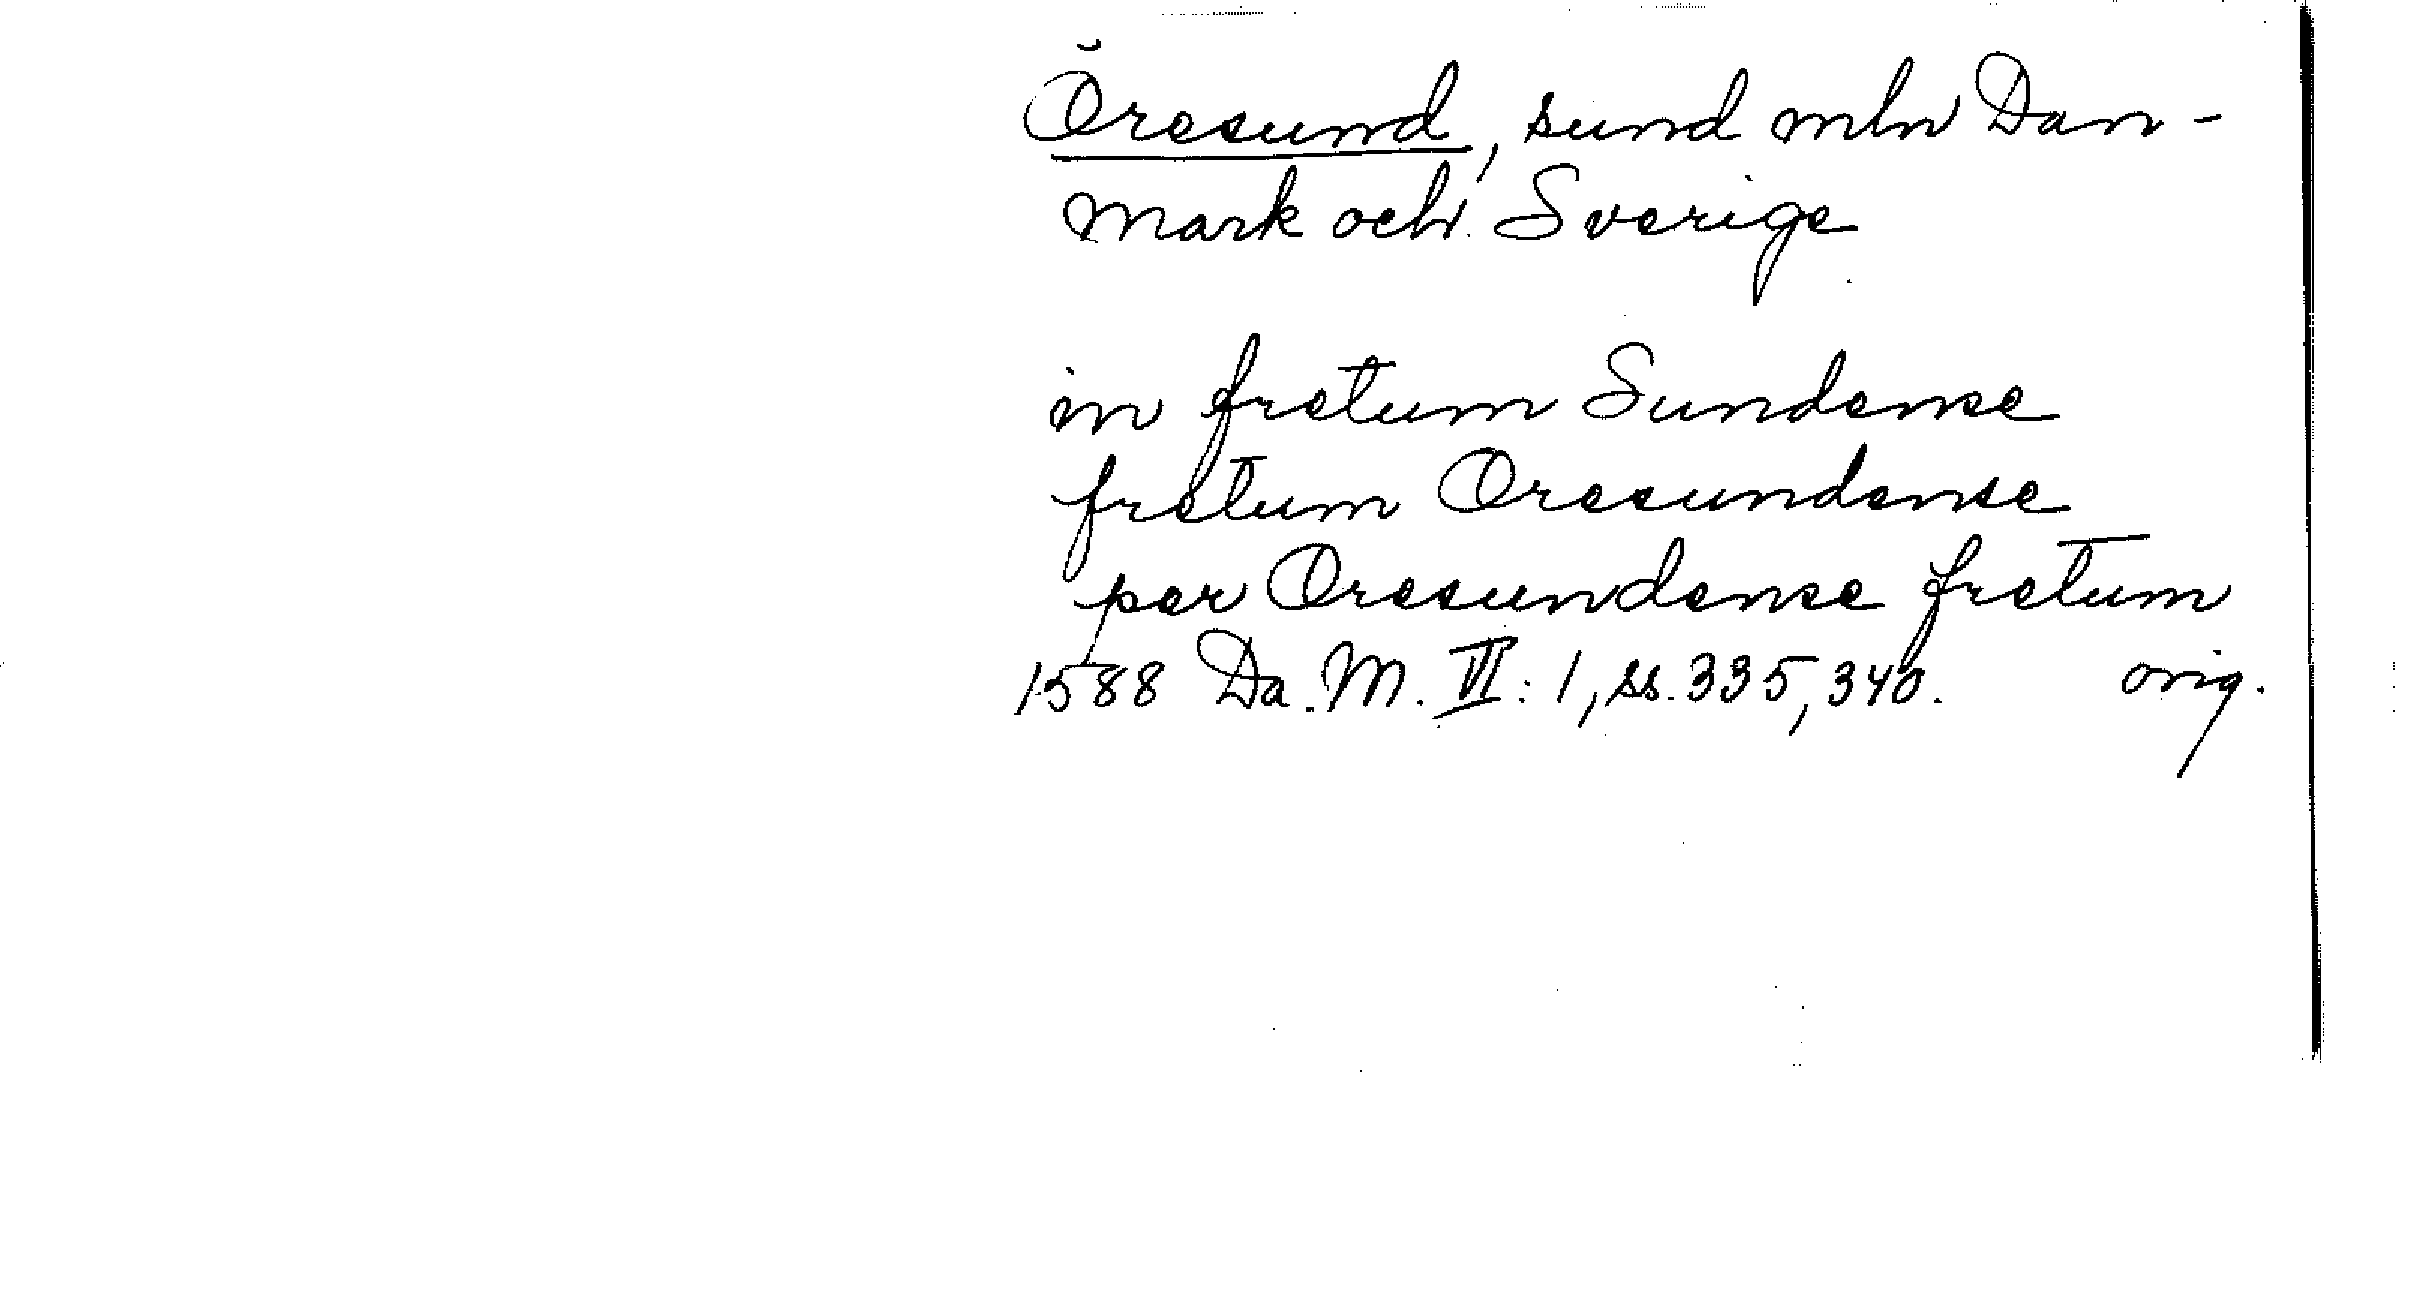 Öresund, sund mln Dan-
mark och Sverige
in fretum Sundense
fretum Oresundense
per Oresundense fretum
1588 Da. M. VI: 1, ss. 335, 340. orig.